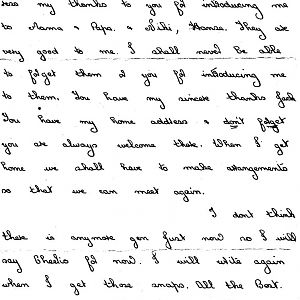 ress my thanks to you for introducing me
to Mama & Papa. & Niki, Hanse. They are
very good to me. I shall never be able
to forget them & you for introducing me
to them. You have my sincere thanks
You have my home address & don't forget
you are always welcome there. When I get
home we shall have to make arrangements
so that we can meet again.
I don't think
there is anymore gen just now so I will
say Cheerio for now. I will write again
when I get those snaps. All the Best.